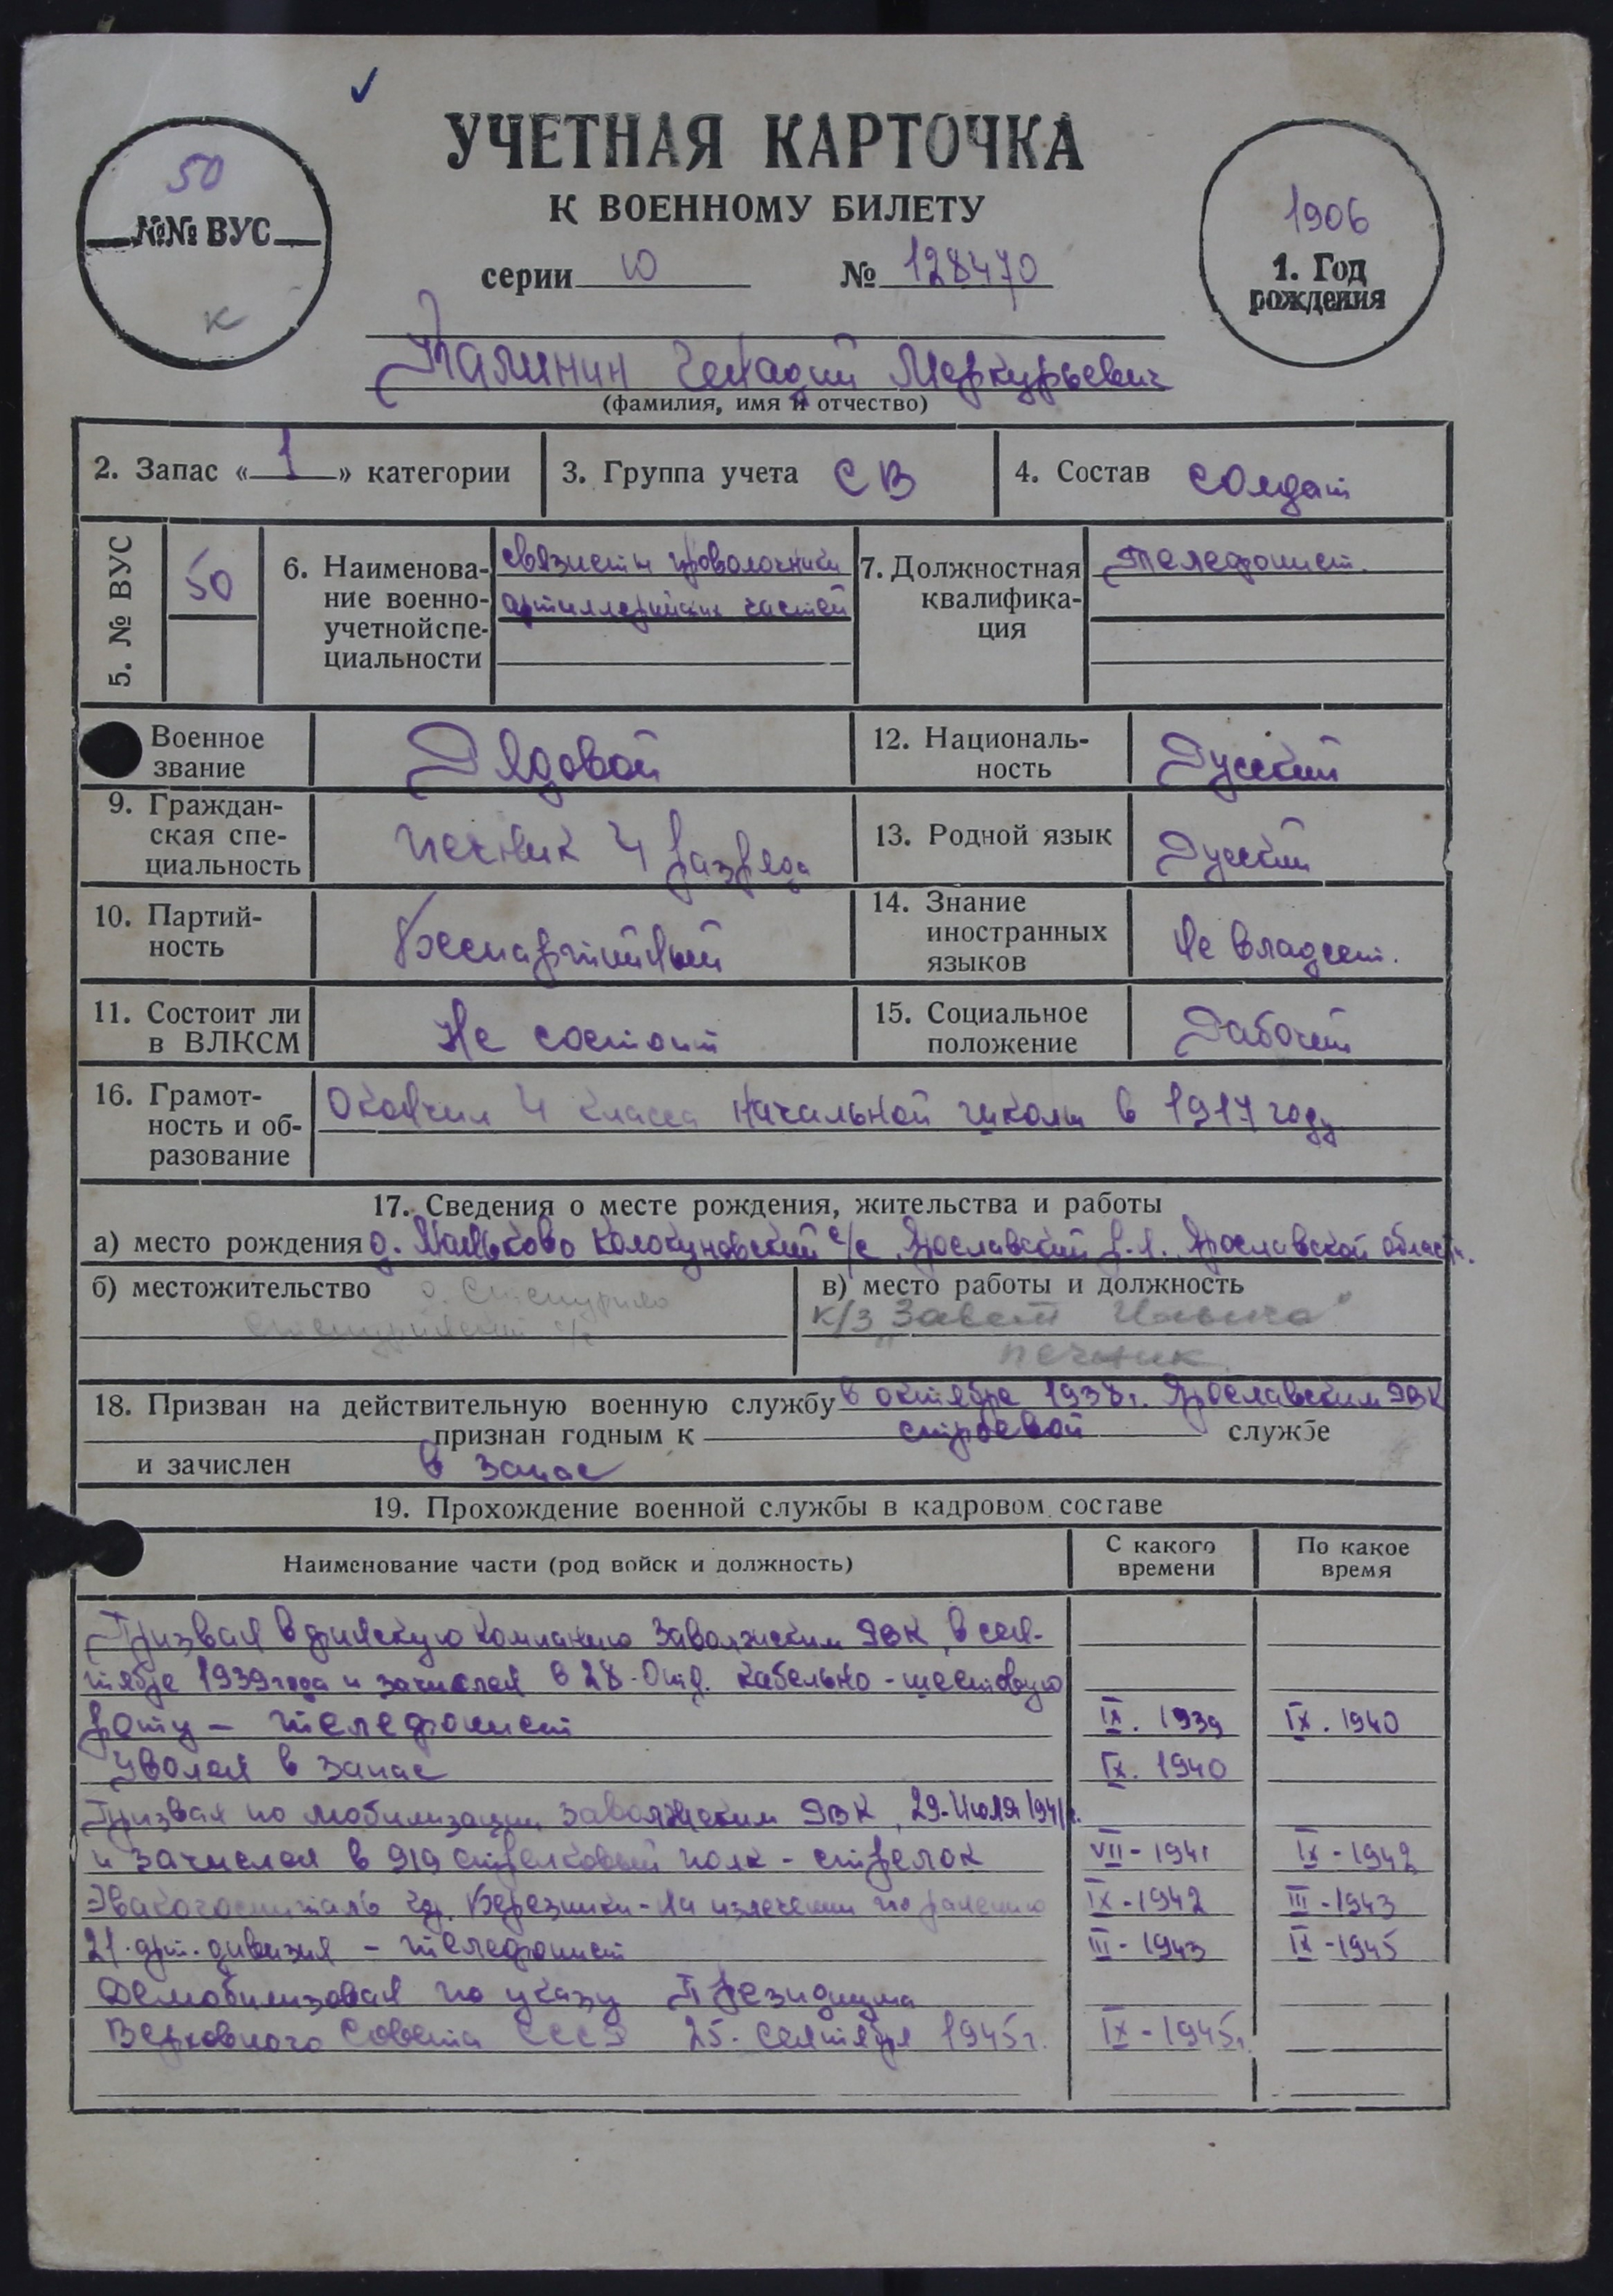 УЧЕТНАЯ КАРТОЧКА
К ВОЕННОМУ БИЛЕТУ
50
№№ ВУС
К
серии Ю № 128470
1906
1. Год
рождения
Калинин Генадий Меркурьевич
(фамилия, имя и отчество)
2. Запас « 1 » категории
3. Группа учета СВ
4. Состав солдат
5. № ВУС
50
6. Наименова-
ние военно-
учетной спе-
циальности
связисты проволочники
артиллерийских частей
7. Должностная
квалифика-
ция
Телефонист.
Военное
звание
Рядовой
12. Националь-
ность
Русский
9. Граждан-
ская спе-
циальность
печник 4 разряда
13. Родной язык
Русский
10. Партий-
ность
Беспартийный
14. Знание
иностранных
языков
Не владеет.
11. Состоит ли
в ВЛКСМ
Не состоит
15. Социальное
положение
Рабочий
16. Грамот-
ность и об-
разование
Окончил 4 класса начальной школы в 1917 году
17. Сведения о месте рождения, жительства и работы
а) место рождения д. с/с, Ярославский р.н. Ярославской области.
б) местожительство д.
с/с
в) место работы и должность
к/з „Завет Ильича"
печник
18. Призван на действительную военную службу в октябре 1938г. Ярославским РВК
признан годным к строевой службе
и зачислен в запас
19. Прохождение военной службы в кадровом составе
Наименование части (род войск и должность)
С какого
времени
По какое
время
Призван в финскую компанию Заволжским РВК, в сен-
тябре 1939 года и зачислен в 28-Отд. кабельно-шестовую
роту – телефонист IX. 1939 IX. 1940
Уволен в запас IX. 1940
Призван по мобилизации Заволжским РВК, 29-Июля 1941г.
и зачислен в 919 стрелковый полк - стрелок VII - 1941 IX - 1942
Эвакогоспиталь гр. Березники - на излечении по ранению IX - 1942 III - 1943
21. арт. дивизия – телефонист III - 1943 IX - 1945
Демобилизован по указу Президиума
Верховного Совета СССР 25. сентября 1945г. IX - 1945г.